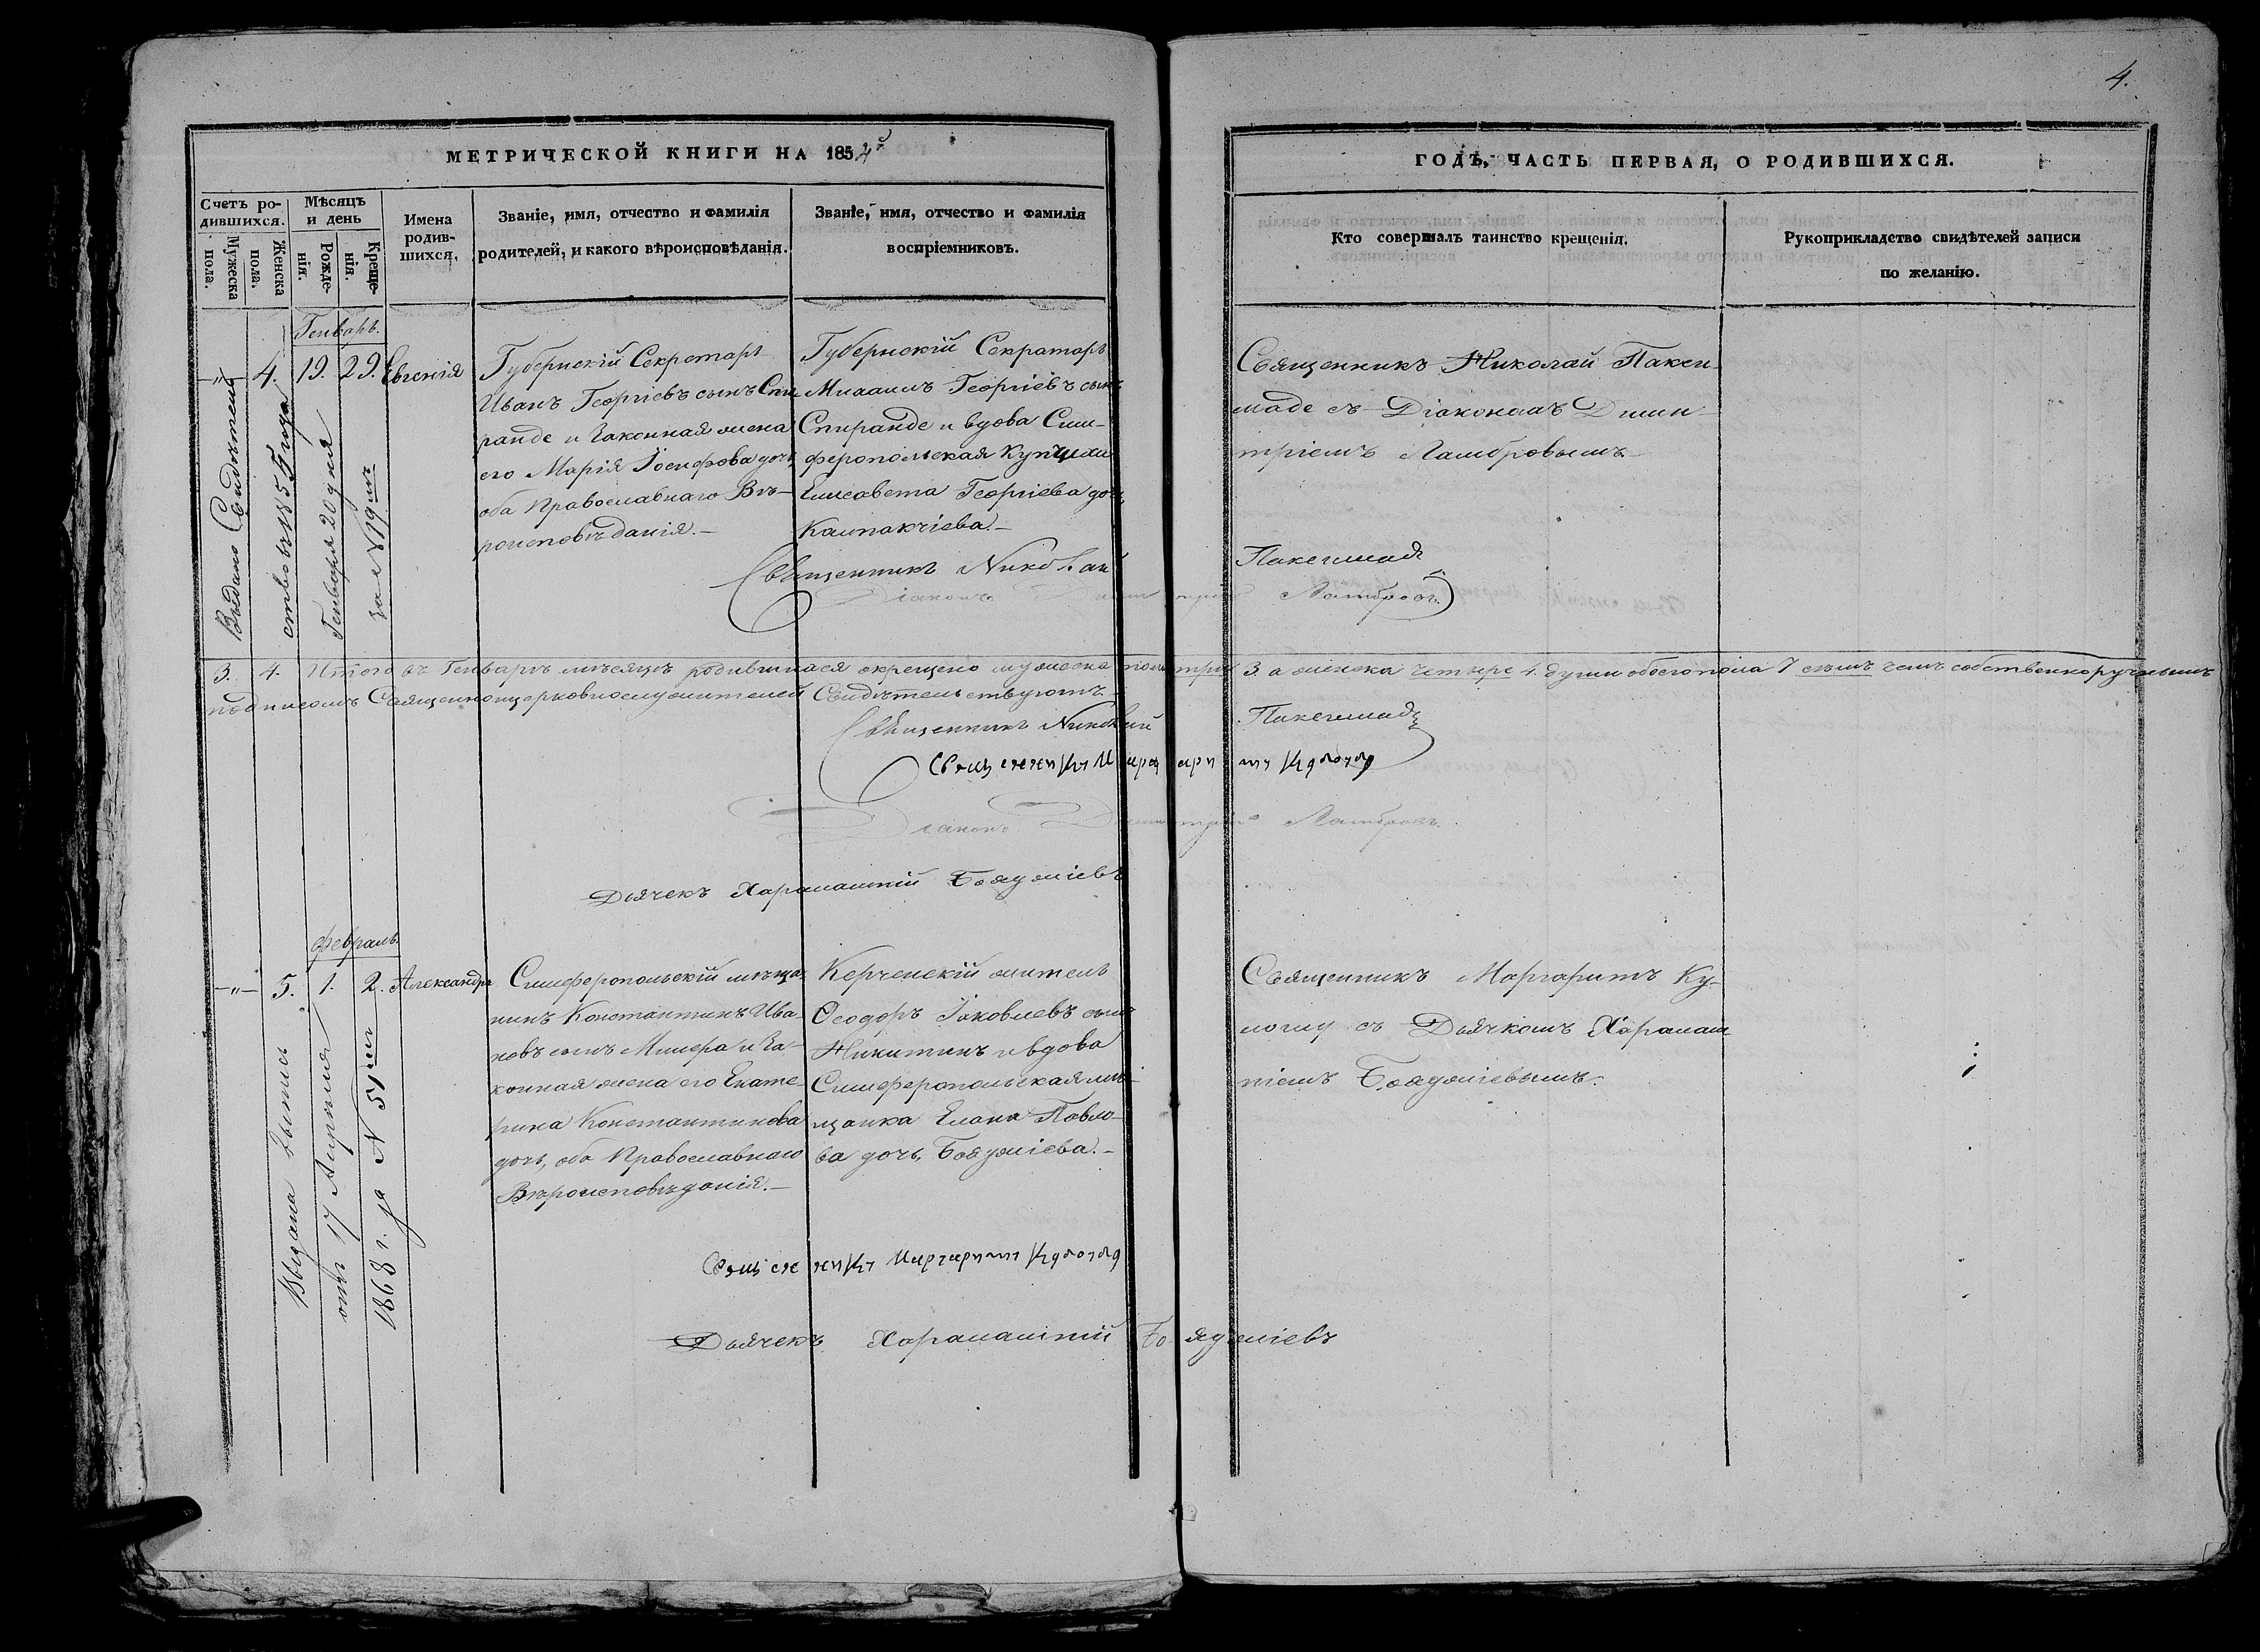 4.
МЕТРИЧЕСКОЙ КНИГИ НА 1854й
ГОДЪ, ЧАСТЬ ПЕРВАЯ, О РОДИВШИХСЯ.
Счетъ ро-
дившихся.
Мужеска
пола.
Женска
пола.
Мѣсяцъ
и день
Рожде-
нія.
Креще-
нія.
Имена
родив-
шихся.
Званіе, имя, отчество и фамилія
родителей, и какого вѣроисповѣданія.
Званіе, имя, отчество и фамилія
воспріемниковъ.
Кто совершалъ таинство крещенія.
Рукоприкладство свидѣтелей записи
по желанію.
Генварь.
—„— 4. 19. 29. Евгенія
Губернскій Секретарь
Иванъ Георгіевъ сынъ Спи-
ранде и Законная жена
его Марія Іосифова дочь,
оба Православнаго Вѣ-
роисповѣданія.—
Губернскій Секратарь
Михаилъ Георгіевъ сынъ
Спиранде и вдова Сим-
феропольская Купчиха
Елисавета Георгіева дочь,
Калпакчіева.—
Священникъ Николай Пакси-
маде съ Діаконамъ Дими-
тріемъ Ламбровымъ
Выдано Свидѣтель
ство въ 1855 года
Генваря 20 дня
за № 19мъ
Священникъ Николай Паксимадѣ
Діаконъ Димитрій Ламбровъ
3. 4. Итого въ Генварѣ мѣсяцѣ родившихся окрещено мужеска пола три 3. а женска четыре 4. души обоего пола 7 семь чемъ собственноручнымъ
подписомъ Священноцерковнослужителей Свидѣтельствуютъ
Священникъ Николай Паксимадѣ
Священникъ Маргаритъ
Діаконъ Димитрій Ламбровъ
Дьячекъ Харалампій Бояджіевъ
февраль
—„— 5. 1. 2. Александра
Симферопольскій мѣща-
нинъ Константинъ Ива-
новъ сынъ Мисера и За-
конная жена его Екате-
рина Константинова
дочь, оба Православнаго
Вѣроисповѣданія.—
Керченскій житель
Ѳеодоръ Іаковлевъ сынъ
Никитинъ и вдова
Симферопольская мѣ-
щанка Елена Павло-
ва дочь, Бояджіева.—
Священникъ Маргаритъ Ку-
логлу съ Дьячкомъ Харалам-
піемъ Бояджіевымъ.
Выдана выпись
отъ 17 Апрѣля
1868 г. за № 51мъ
Священникъ Маргаритъ
Дьячекъ Харалампій Бояджіевъ